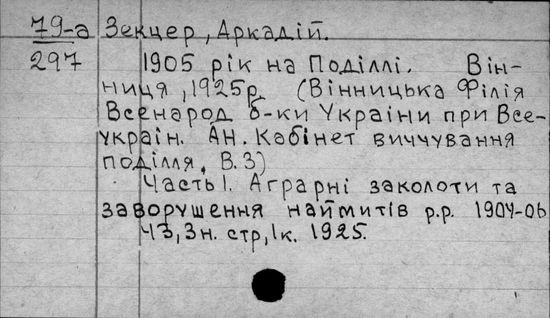 79-а Зекцер, Аркадій.
297 1905 рік на Поділлі. Він-
ниця, 1925р. (Вінницька Філія
Всенарод б-ки Украіни при Все-
украін. Ан. Кабінет виччування
поділля. В. 3)
Часть І. Аграрні заколоти та
заворушення наймитів р.р. 1904-06
43, 3н. стр, 1к. 1925.